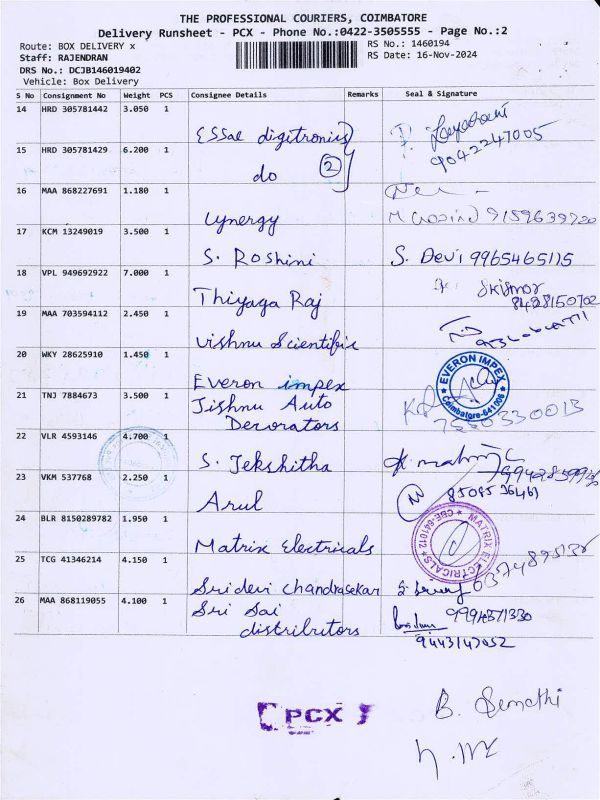 THE PROFESSIONAL COURIERS, COIMBATORE
Delivery Runsheet - PCX - Phone No.:0422-3505555 - Page No.:2
Route: BOX DELIVERY x
RS No.: 1460194
Staff: RAJENDRAN
RS Date: 16-Nov-2024
DRS No.: DCJB146019402
Vehicle: Box Delivery
S No Consignment No Weight PCS Consignee Details Remarks Seal & Signature
14 HRD 305781442 3.050 1
ESSae digitronics
9042247005
15 HRD 305781429 6.200 1
do 2
16 MAA 868227691 1.180 1
Lynergy
9159639720
17 KCM 13249019 3.500 1
S. Roshini S. Devi 9965465115
18 VPL 949692922 7.000 1
Thiyaga Raj 8428150702
19 MAA 703594112 2.450 1
Vishnu Scientific
20 WKY 28625910 1.450 1
Everon impex
EVERON IMPEX
Coimbatore-641006
21 TNJ 7884673 3.500 1
Jishnu Auto
Decorators
22 VLR 4593146 4.700 1
S. Jekshitha
23 VKM 537768 2.250 1
Arul
24 BLR 8150289782 1.950 1
Matrix Electricals
MATRIX ELECTRICALS
CBE-641012
25 TCG 41346214 4.150 1
Sridevi Chandrasekar
26 MAA 868119055 4.100 1
Sri Sai
distributors
9994571330
9443147052
PCX
B.